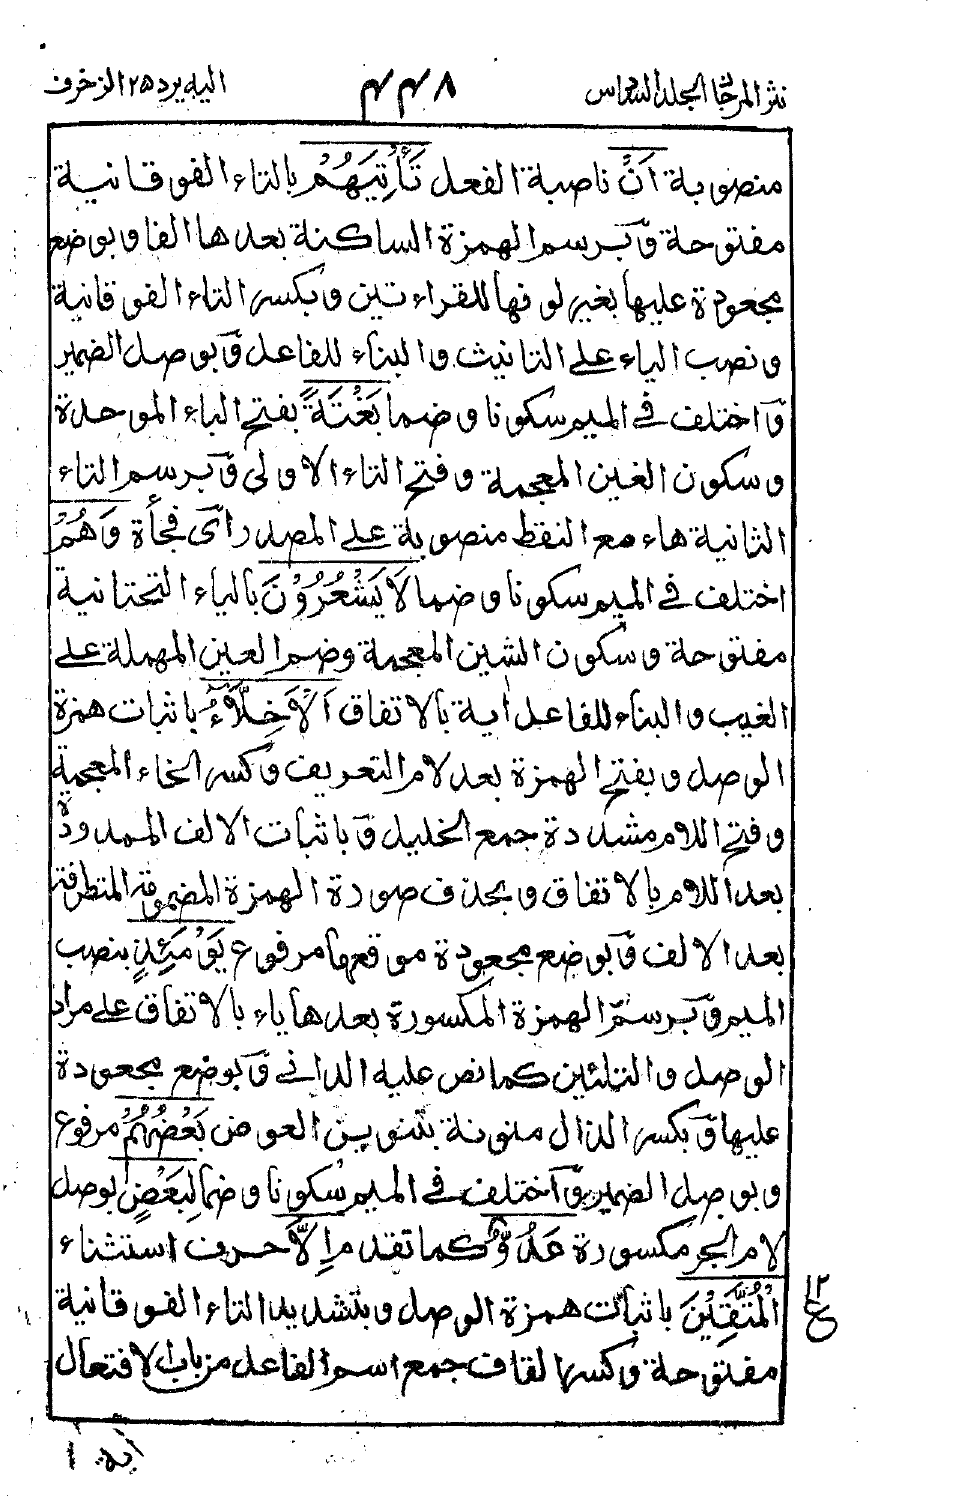 نثر المرجان المجلد السادس ٤٤٨ اليه يرد ٢٥ الزخرف
منصوبة اَنْ ناصبة الفعل تَأْتِيَهُمْ بالتاء الفوقانية
مفتوحة وَبرسم الهمزة الساكنة بعدها الفا وبوضع
مجعودة عليها بغير لونها للقراءتين وبكسر التاء الفوقانية
ونصب الياء على التانيث والبناء للفاعل وَبوصل الضمير
وَاختلف في الميم سكونا وضما بَغْتَةً بفتح الباء الموحدة
وسكون الغين المعجمة وفتح التاء الاولى وَبرسم التاء
الثانية هاء مع النقط منصوبة على المصدر اَى فجأة وَهُمْ
اختلف في الميم سكونا وضما لَا يَشْعُرُوْنَ بالياء التحتانية
مفتوحة وسكون الشين المعجمة وضم العين المهملة على
الغيب والبناء للفاعل اية بالاتفاق اَلْاَخِلَّاۤءُ باثبات همزة
الوصل وبفتح الهمزة بعد لام التعريف وكسر الخاء المعجمة
وفتح اللام مشددة جمع الخليل وَباثبات الالف الممدودة
بعد اللام بالاتفاق وبحذف صورة الهمزة المضمومة المتطرفة
بعد الالف وَبوضع مجعودة موقعها مرفوع يَوْمَئِذٍ بنصب
الميم وَبرسم الهمزة المكسورة بعدها ياء بالاتفاق على مراد
الوصل والتليين كما نص عليه الداني وَبوضع مجعودة
عليها وَبكسر الذال منونة بتنوين العوض بَعْضُهُمْ مرفوع
وبوصل الضمير وَاختلف في الميم سكونا وضما لِبَعْضٍ بوصل
لام الجر مكسورة عَدُوٌّ كما تقدم اِلَّا حرف استثناء
الْمُتَّقِيْنَ باثبات همزة الوصل وبتشديد التاء الفوقانية
مفتوحة وكسر القاف جمع اسم الفاعل من باب الافتعال
١٢
ع
اية